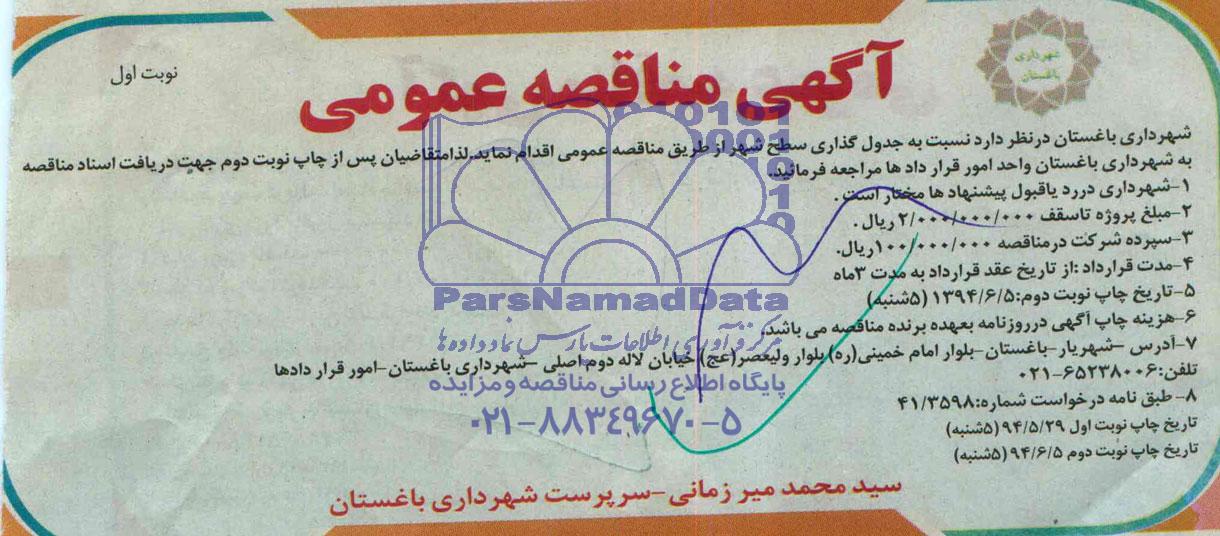 شهرداری
باغستان
نوبت اول
آگهی مناقصه عمومی
شهرداری باغستان درنظر دارد نسبت به جدول گذاری سطح شهر از طریق مناقصه عمومی اقدام نماید.لذامتقاضیان پس از چاپ نوبت دوم جهت دریافت اسناد مناقصه
به شهرداری باغستان واحد امور قرار داد ها مراجعه فرمائید.
۱-شهرداری دررد یاقبول پیشنهاد ها مختار است .
۲-مبلغ پروژه تاسقف ۲/۰۰۰/۰۰۰/۰۰۰ ریال .
۳-سپرده شرکت درمناقصه ۱۰۰/۰۰۰/۰۰۰ریال.
۴-مدت قرارداد :از تاریخ عقد قرارداد به مدت ۳ماه
۵-تاریخ چاپ نوبت دوم:۱۳۹۴/۶/۵ (۵شنبه)
۶-هزینه چاپ آگهی درروزنامه بعهده برنده مناقصه می باشد.
۷-آدرس –شهریار-باغستان-بلوار امام خمینی(ره) بلوار ولیعصر(عج) خیابان لاله دوم اصلی –شهرداری باغستان-امور قرار دادها
تلفن:۶۵۲۳۸۰۰۶-۰۲۱
۸- طبق نامه درخواست شماره:۴۱/۳۵۹۸
تاریخ چاپ نوبت اول ۹۴/۵/۲۹ (۵شنبه)
تاریخ چاپ نوبت دوم ۹۴/۶/۵ (۵شنبه)
سید محمد میر زمانی-سرپرست شهرداری باغستان
ParsNamadData
مرکز فرآوری اطلاعات پارس نماد داده ها
پایگاه اطلاع رسانی مناقصه و مزایده
۰۲۱-۸۸۳۴۹۶۷۰-۵